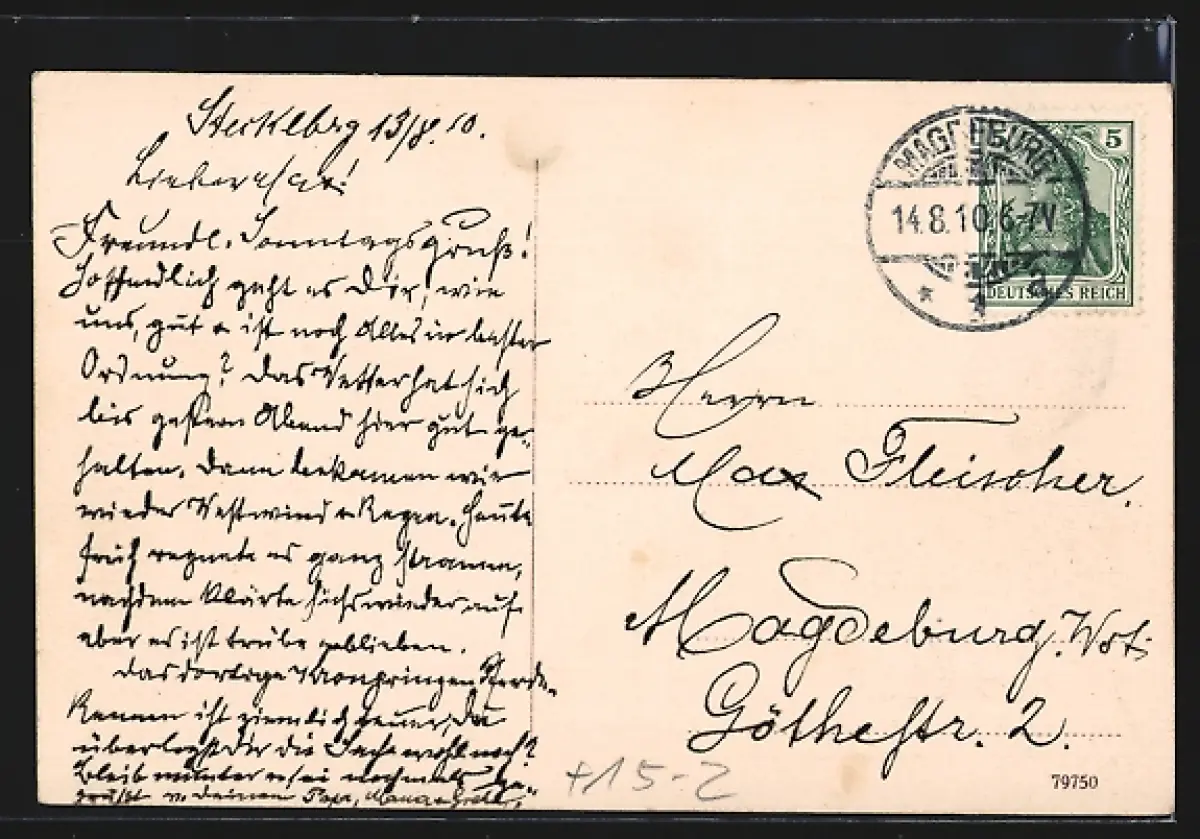 Stecklbg 13/8.10.
Lieber Max!
Freundl. Sonntagsgruß!
Hoffendlich geht es Dir, wie
uns, gut & ist noch Alles in bester
Ordnung? Das Wetter hat sich
bis gestern Abend hier gut ge-
halten, dann bekamen wir
wieder Westwind & Regen. Heute
früh regnete es ganz stramm,
nachdem klärte sichs wieder auf
aber es ist trübe geblieben.
Das dortige Kronprinzen Pferde-
Rennen ist ziemlich teuer, Du
überlegst Dir die Sache wohl noch?
Bleib munter & sei nochmals ge-
grüßt v. Deinem Papa, Mama &
MAGDEBURG
14.8.10. 6-7V
* 1 a
5
DEUTSCHES REICH
Herrn
Max Fleischer.
Magdeburg. Wst.
Göthestr. 2.
+15-2
79750